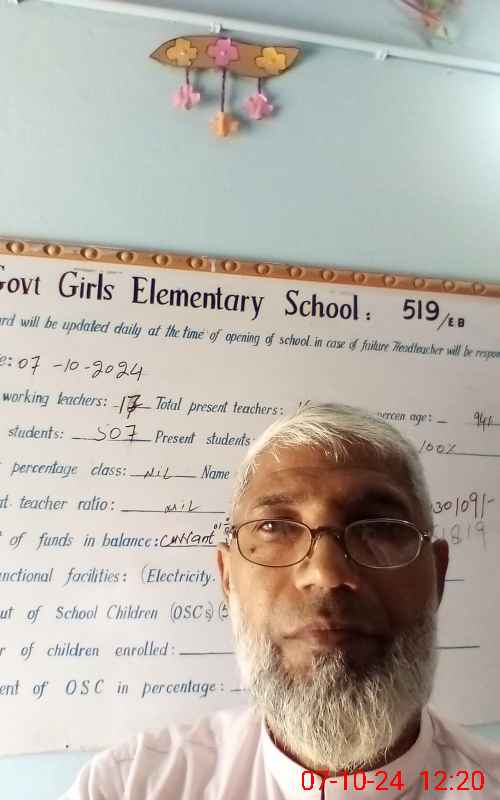 Govt Girls Elementary School: 519/EB
ard will be updated daily at the time of opening of school. in case of failure Headteacher will be respon
e: 07-10-2024
working teachers: 17 Total present teachers: percen age: 94%
students: 507 Present students: 100%
percentage class: Nil Name
at. teacher ratio: Nil 30109/-
of funds in balance: current 1819
unctional facilities: (Electricity.
ut of School Children (OSCs) (5
r of children enrolled:
ent of OSC in percentage:
07-10-24 12:20